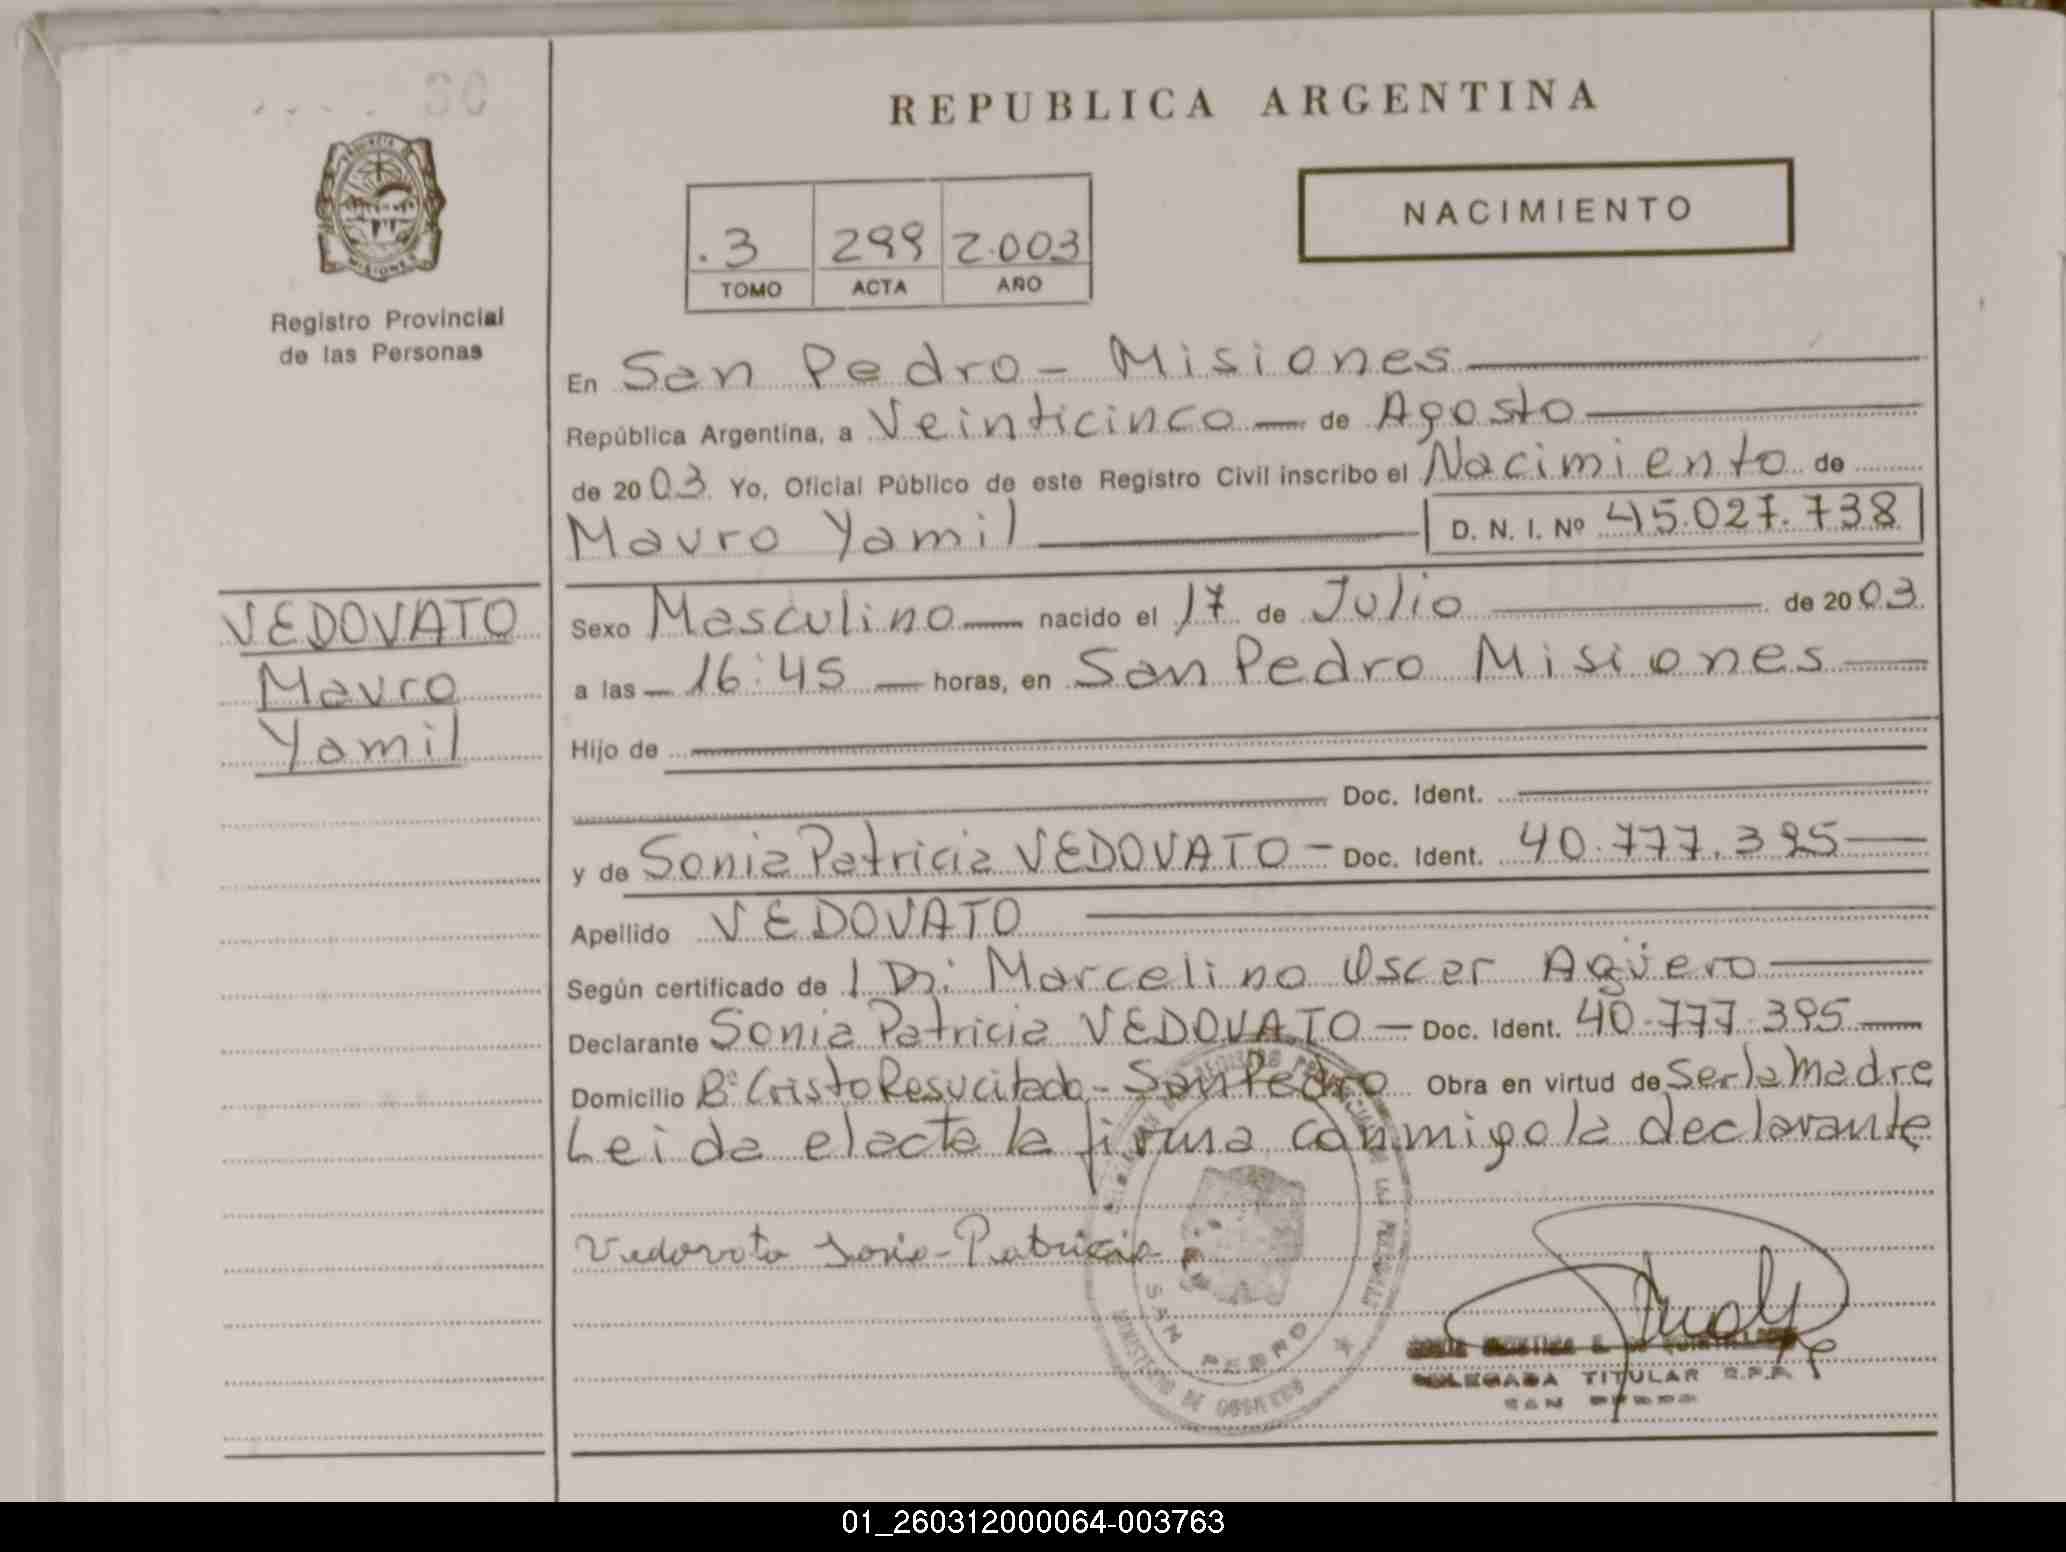 REPUBLICA ARGENTINA
NACIMIENTO
.3 299 2.003
TOMO ACTA AÑO
MISIONES
Registro Provincial
de las Personas
En San Pedro - Misiones
República Argentina, a Veinticinco de Agosto
de 2003. Yo, Oficial Público de este Registro Civil inscribo el Nacimiento de
Mauro Yamil D. N. I. Nº 45.027.738
VEDOVATO
Mauro
Yamil
Sexo Masculino nacido el 17 de Julio de 2003
a las 16:45 horas, en San Pedro Misiones
Hijo de
Doc. Ident.
y de Sonia Patricia VEDOVATO - Doc. Ident. 40.777.395
Apellido VEDOVATO
Según certificado de l Dr: Marcelino Oscar Agüero
Declarante Sonia Patricia VEDOVATO - Doc. Ident. 40.777.395
Domicilio Bº Cristo Resucitado - San Pedro Obra en virtud de Ser la Madre
Leida el acta la firma conmigo la declarante
Vedovato Sonia Patricia
SAN PEDRO
MINISTERIO DE GOBIERNO
DELEGADA TITULAR R.P.P.
SAN PEDRO
01_260312000064-003763